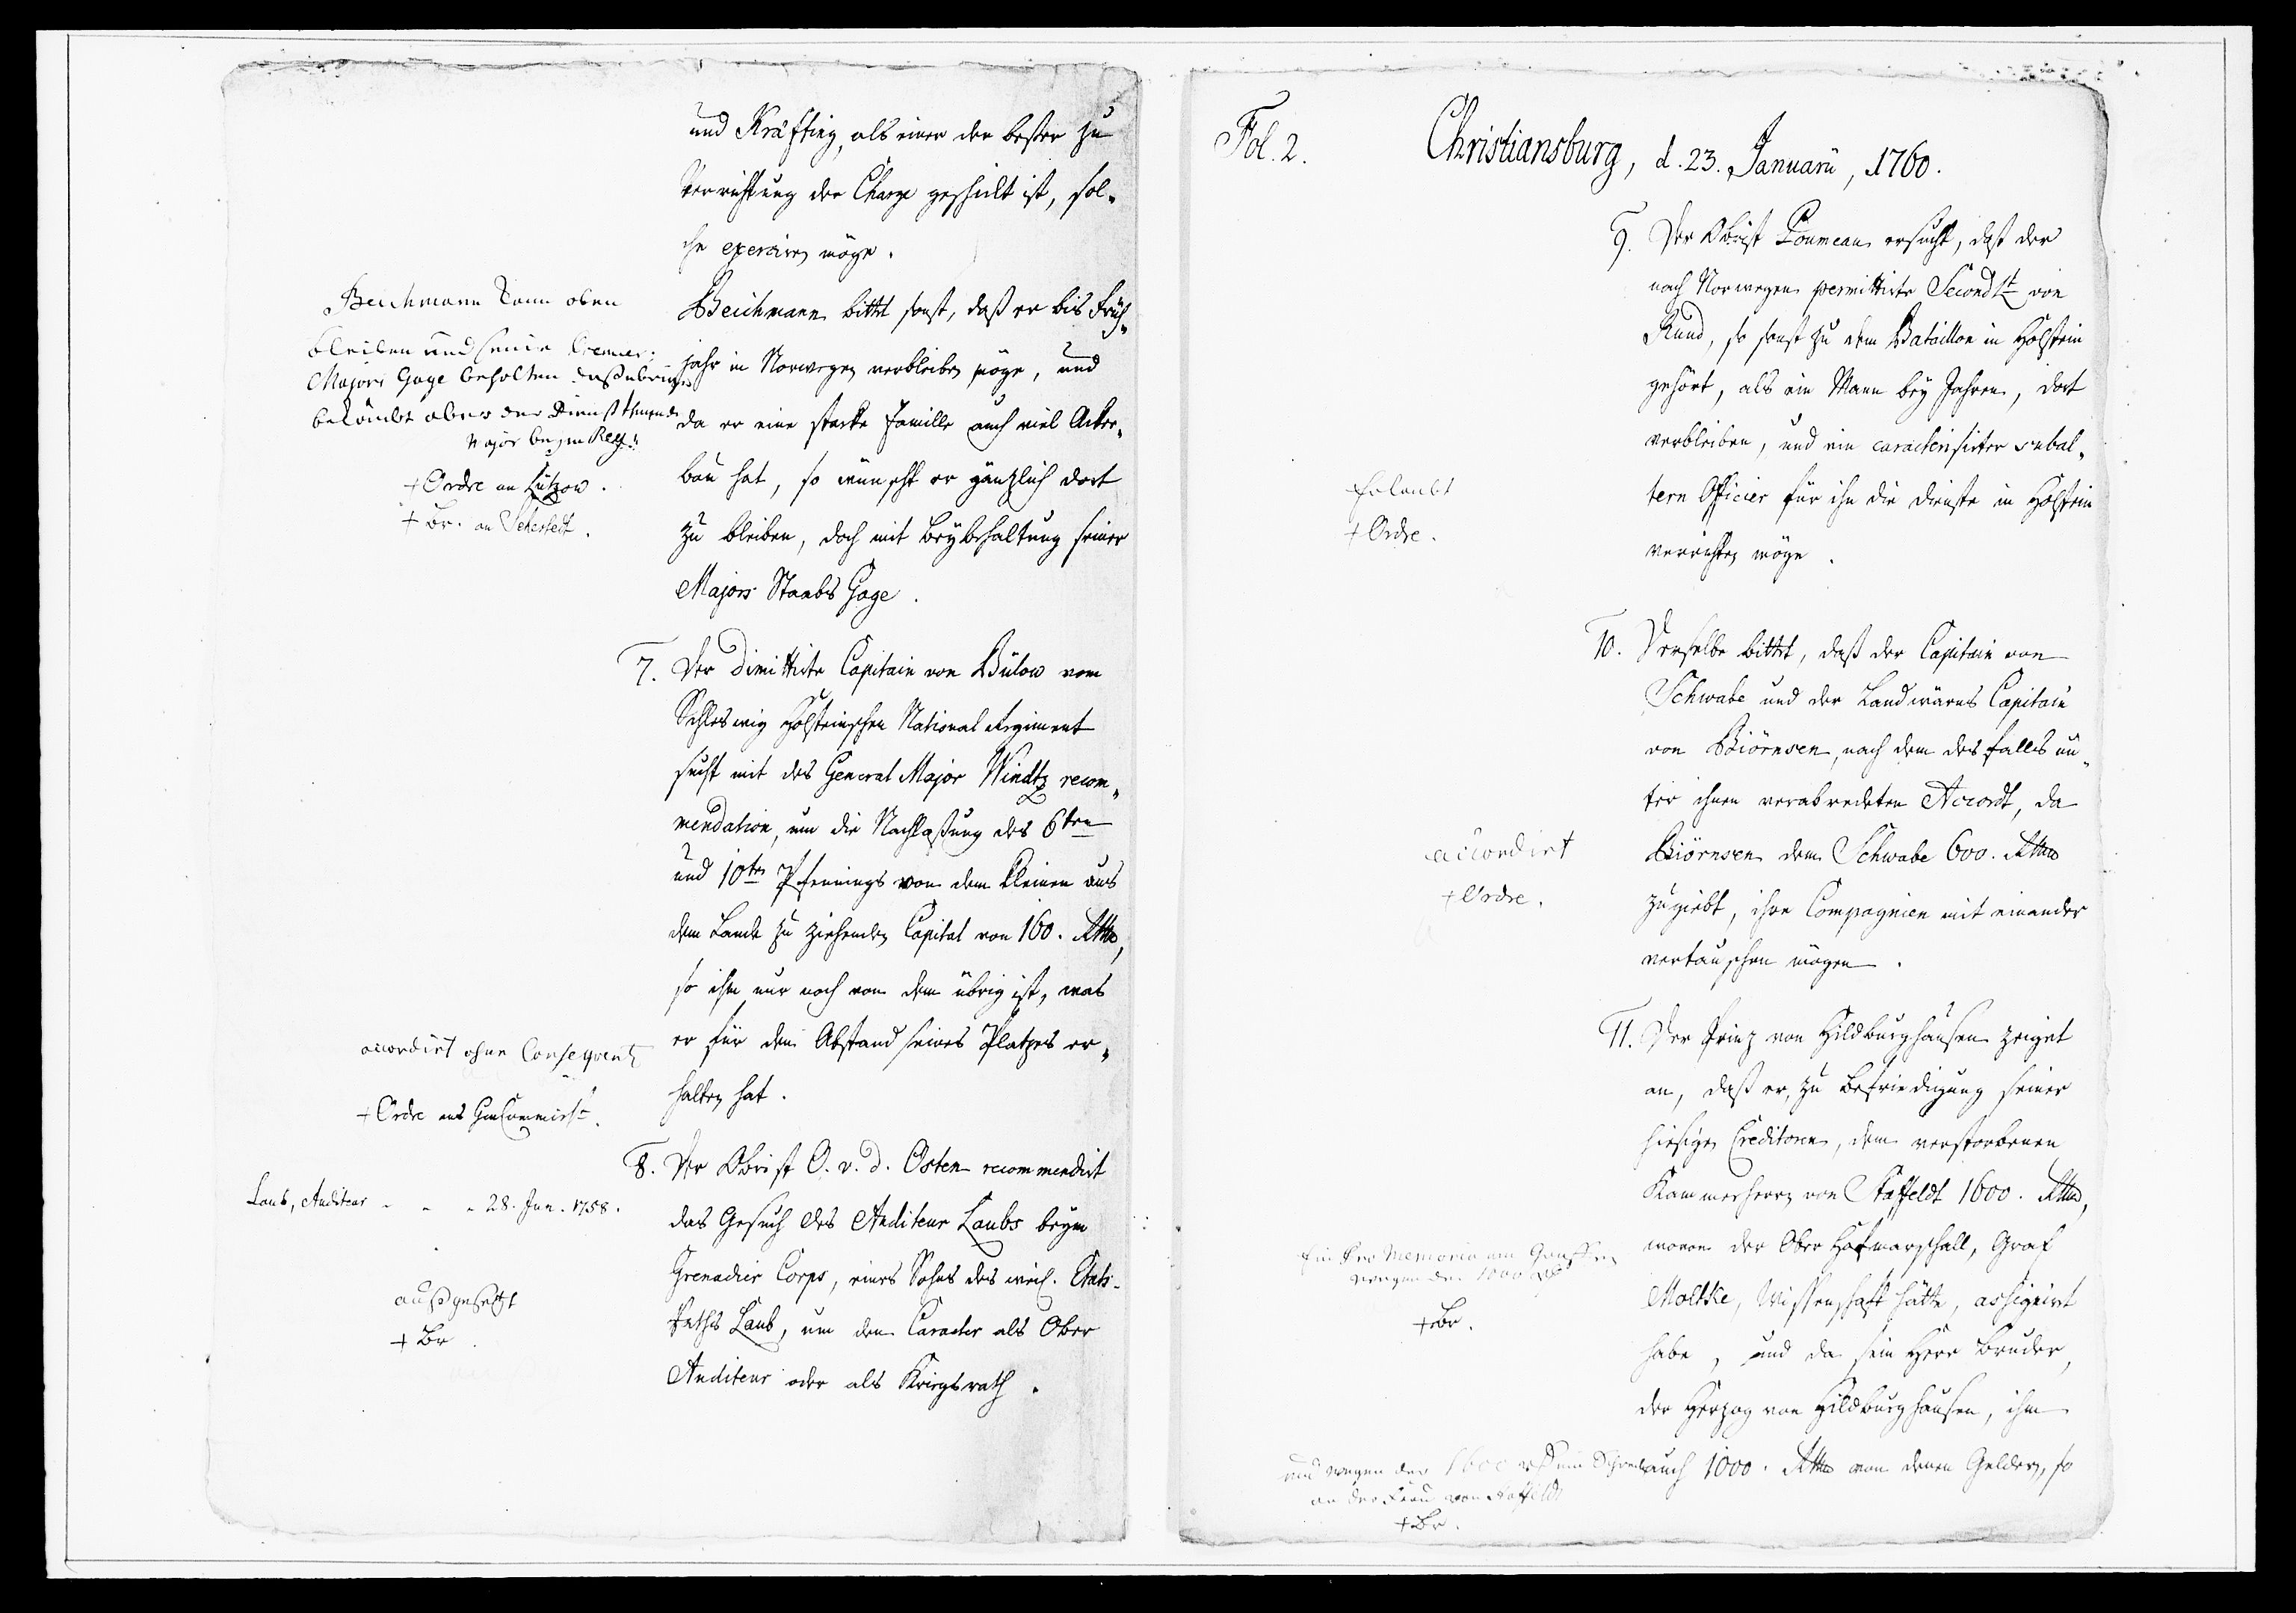 und Kräfting, als einer der besten zu
Verrichtung der Charge geschickt ist, sol-
che exerciren möge.
Beichmann kann oben
bleiben und seine Premier-
Majors Gage behalten
bekömbt aber der Dienstthuende
Major beym Reg:
+ Ordre an Lützow.
+ Br. an Sehestedt.
Beichmann bittet sonst, daß er bis Früh-
jahr in Norwegen verbleiben möge, und
da er eine starke Famille auch viel Acker-
bau hat, so wünscht er gänzlich dort
zu bleiben, doch mit Beybehaltung seiner
Majors Staabs Gage.
7. Der dimittirte Capitain von Bülow vom
Schleswig Holsteinschen National Regiment
sucht mit des General Major Windtz recom-
mendation, um die Nachlaßung des 6ten
und 10ten Pfennings von dem kleinen aus
dem Lande zu ziehenden Capital von 160. Rthlr,
so ihm nur noch von dem übrig ist, was
er für den Abstand seines Platzes er-
halten hat.
accordirt ohne Consequentz
+ Ordre ans GenCommiss.
8. Der Obrist O. v. d. Osten recommendirt
das Gesuch des Auditeur Laubs beym
Grenadier Corps, eines Sohns des weil. Etats-
Raths Laub, um den Caracter als Ober
Auditeur oder als Kriegsrath.
Laub, Auditeur - - - 28. Jun. 1758.
außgesetzt
+ Br.
Fol. 2.
Christiansburg, d. 23. Januarii, 1760.
9. Der Obrist Loumeau ersucht, daß der
nach Norwegen permittirte Secondlt von
Rund, so sonst zu dem Bataillon in Holstein
gehört, als ein Mann bey Jahren, dort
verbleiben, und ein caracterisirter subal-
tern Officier für ihn die Dienste in Holstein
verrichten möge.
Erlaubt
+ Ordre.
10. Derselbe bittet, daß der Capitain von
Schwabe und der Landwärns Capitain
von Biörnsen, nach dem desfalls un-
ter ihnen verabredeten Accordt, da
Biörnsen dem Schwabe 600. Rthlr
zugiebt, ihre Compagnien mit einander
vertauschen mögen.
accordirt
+ Ordre.
11. Der Prinz von Hildburghausen zeiget
an, daß er, zu Befriedigung seiner
hiesigen Creditoren, dem verstorbenen
Kammerherrn von Staffeldt 1600. Rthlr,
wovon der Ober Hofmarschall, Graf
Moltke, Wissenschaft hätte, assignirt
habe, und da sein Herr Bruder,
der Herzog von Hildburghausen, ihm
auch 1000. Rthlr von denen Geldern, so
Ein Pro Memoria an
wegen der 1000
+ Br.
und wegen der 1600 ein Schreiben
an der Frau von Staffeldt
+ Br.